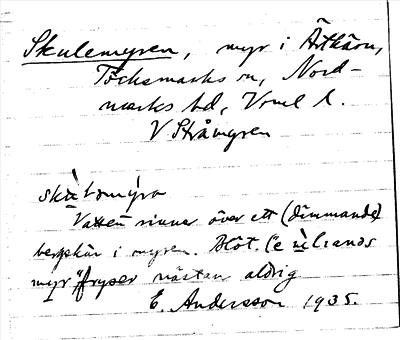 Skulemyren, myr i Ärtkärn,
Töcksmarks sn, Nord-
marks hd, Vrml l.
V Stråmyren
skùlǝmýra
Vatten rinner över ett (dimmande)
bergskär i myren. Blöt.
myr", fryser nästan aldrig
E. Andersson 1935.